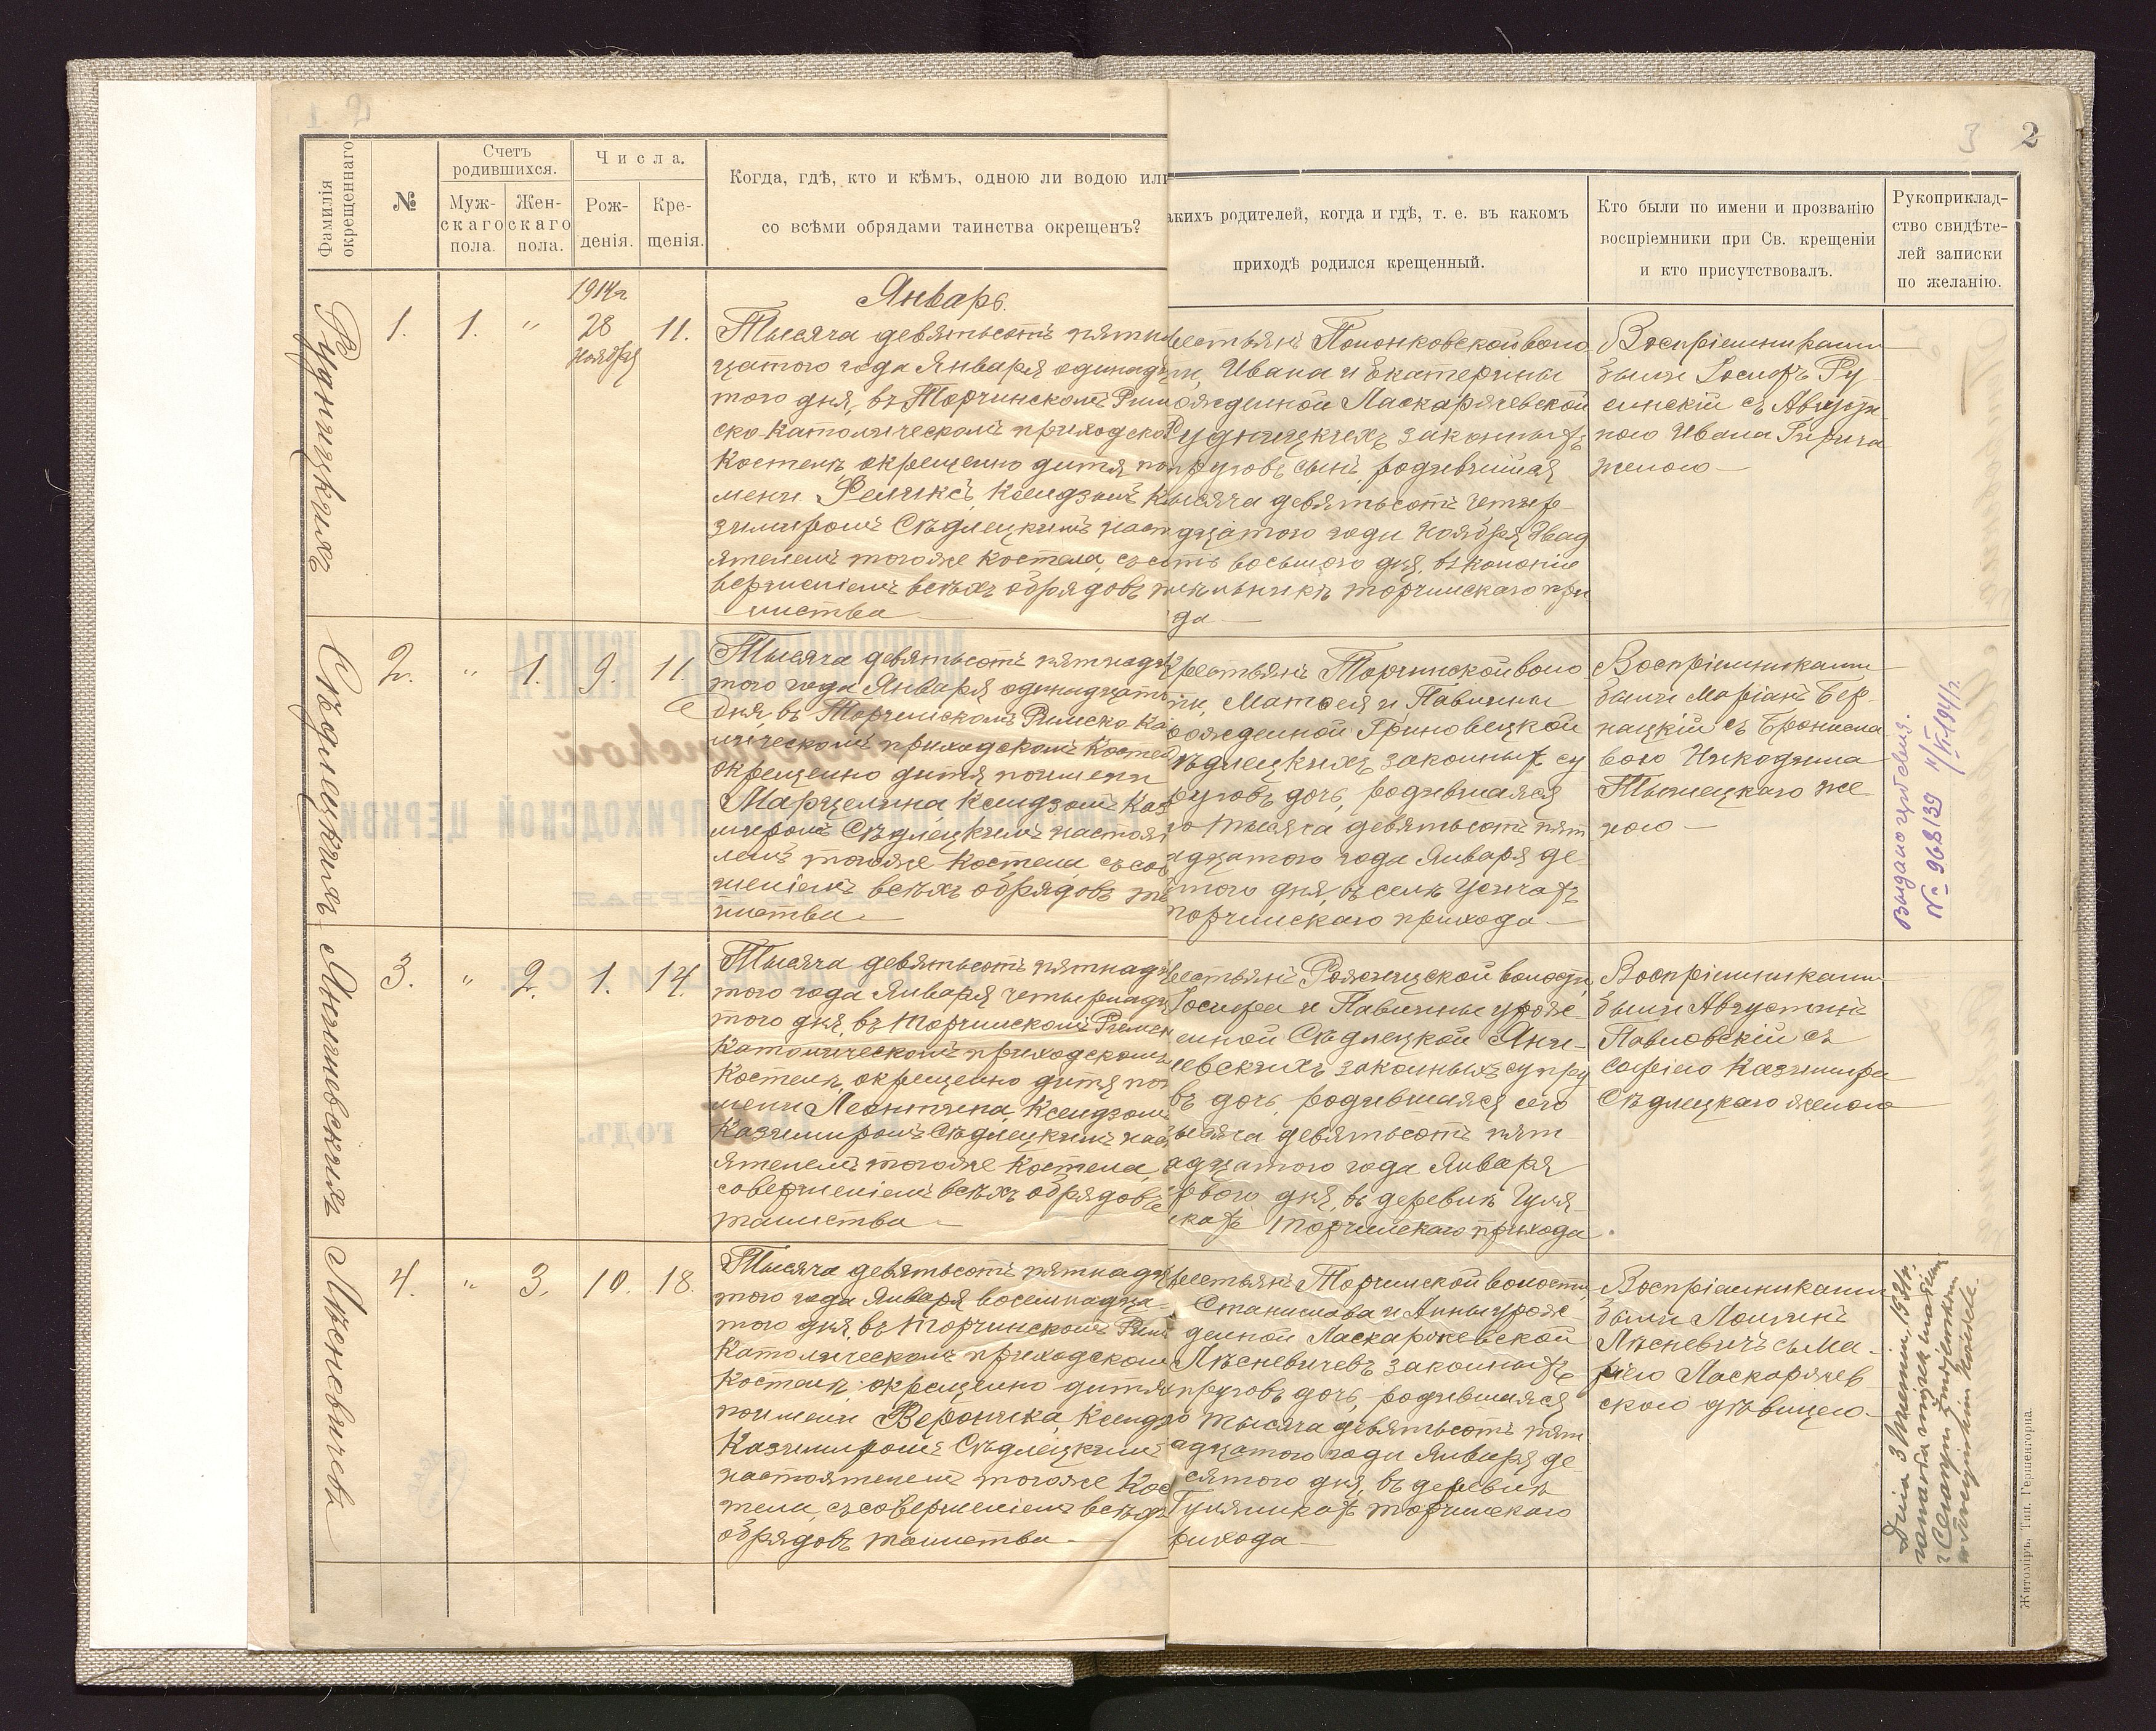 3 2
Фамилія окрещеннаго
№
Счетъ родившихся.
Муж-скаго пола.
Жен-скаго пола.
Числа.
Рож-денія.
Кре-щенія.
Когда, гдѣ, кто и кѣмъ, одною ли водою или
со всѣми обрядами таинства окрещенъ?
акихъ родителей, когда и гдѣ, т. е. въ какомъ
приходѣ родился крещенный.
Кто были по имени и прозванію
воспріемники при Св. крещеніи
и кто присутствовалъ.
Рукоприклад-
ство свидѣте-
лей записки
по желанію.
Рудницкихъ
1. 1. " 1914 г 28 Ноября 11.
Январь.
Тысяча девятьсотъ пятна
цатого года Января одинадц
того дня, въ Торчинскомъ Рим
ско Католическомъ приходско
Костелѣ окрещено дитя по
мени Феликсъ, Ксендзомъ К
зимиромъ Сѣдлецкимъ наст
ятелемъ тогоже Костела, съ с
вершеніемъ всѣхъ обрядовъ т
инства
рестьянъ Полонковской воло
ти, Ивана и Екатерины
ожденной Ласкаржевской
Рудницкихъ законныхъ
пруговъ сынъ, родившійся
ысяча девятьсотъ четыр
дцатого года Ноября двад
ть восьмого дня, въ колоніе
торчинскаго при
да
Воспріемниками
были Іосифъ Ру
синскій съ Августи
ною Ивана
женою
Сѣдлецкихъ
2. " 1. 9. 11.
Тысяча девятьсотъ пятнадц
того года Января одинадцат
дня, въ Торчинскомъ Римско Ка
лическомъ приходскомъ Косте
окрещено дитя поимени
Марцелина, Ксендзомъ Каз
миромъ Сѣдлецкимъ настоят
лемъ тогоже Костела, съ сов
шеніемъ всѣхъ обрядовъ та
инства
рестьянъ Торчинской воло
ти, Матѳея и Павлины
ожденной Гриновецкой
Сѣдлецкихъ законныхъ су
руговъ дочь, родившаяся
го тысяча девятьсотъ пят
адцатого года Января де
ятого дня, въ селѣ Усичахъ
торчинскаго прихода
Воспріемниками
были Маріанъ Бер-
нацкій съ Бронисла
вою Никодима
же
ною
Выдано удостов.
№ 968/39 4/IV 1941 г.
Яничевскихъ
3. " 2. 1. 14.
Тысяча девятьсотъ пятнадц
того года Января четырнадц
того дня, въ Торчинскомъ Римск
Католическомъ приходскомъ
Костелѣ, окрещено дитя по
мени Леонтина, Ксендзомъ
Казимиромъ Сѣдлецкимъ нас
ятелемъ тогоже Костела,
совершеніемъ всѣхъ обрядовъ
таинства
рестьянъ Рожищской волости,
Іосифа и Павлины урож
енной Сѣдлецкой Яни-
чевскихъ законныхъ супру
въ дочь, родившаяся сего
ысяча девятьсотъ пят
адцатого года Января
рвого дня, въ деревнѣ Гуля
икахъ Торчинскаго прихода
Воспріемниками
были Августинъ
Павловскій съ
Софіею Казимира
Сѣдлецкаго женою
Лѣсневичевъ
4. " 3. 10. 18.
Тысяча девятьсотъ пятнадц
того года Января восемнадца
того дня, въ Торчинскомъ Рим
Католическомъ приходскомъ
Костелѣ, окрещено дитя
поимени Вероника, Ксендз
Казимиромъ Сѣдлецкимъ
настоятелемъ тогоже Кос
тела, съ совершеніемъ всѣхъ
обрядовъ таинства
рестьянъ Торчинской волости,
Станислава и Анны урож
денной Ласкаржевской
Лѣсневичевъ законныхъ
пруговъ дочь, родившаяся
го тысяча девятьсотъ пят
адцатого года Января де
сятого дня, въ деревнѣ
Гуляникахъ торчинскаго
рихода
Воспріемниками
были
Лѣсневичъ съ Ма-
ріею Ласкаржев
скою дѣвицею
Житоміръ, Тип. Гершенгорна.